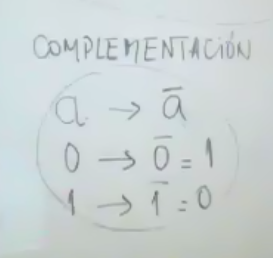 COMPLEMENTACIÓN
a → a̅
0 → 0̅ = 1
1 → 1̅ = 0